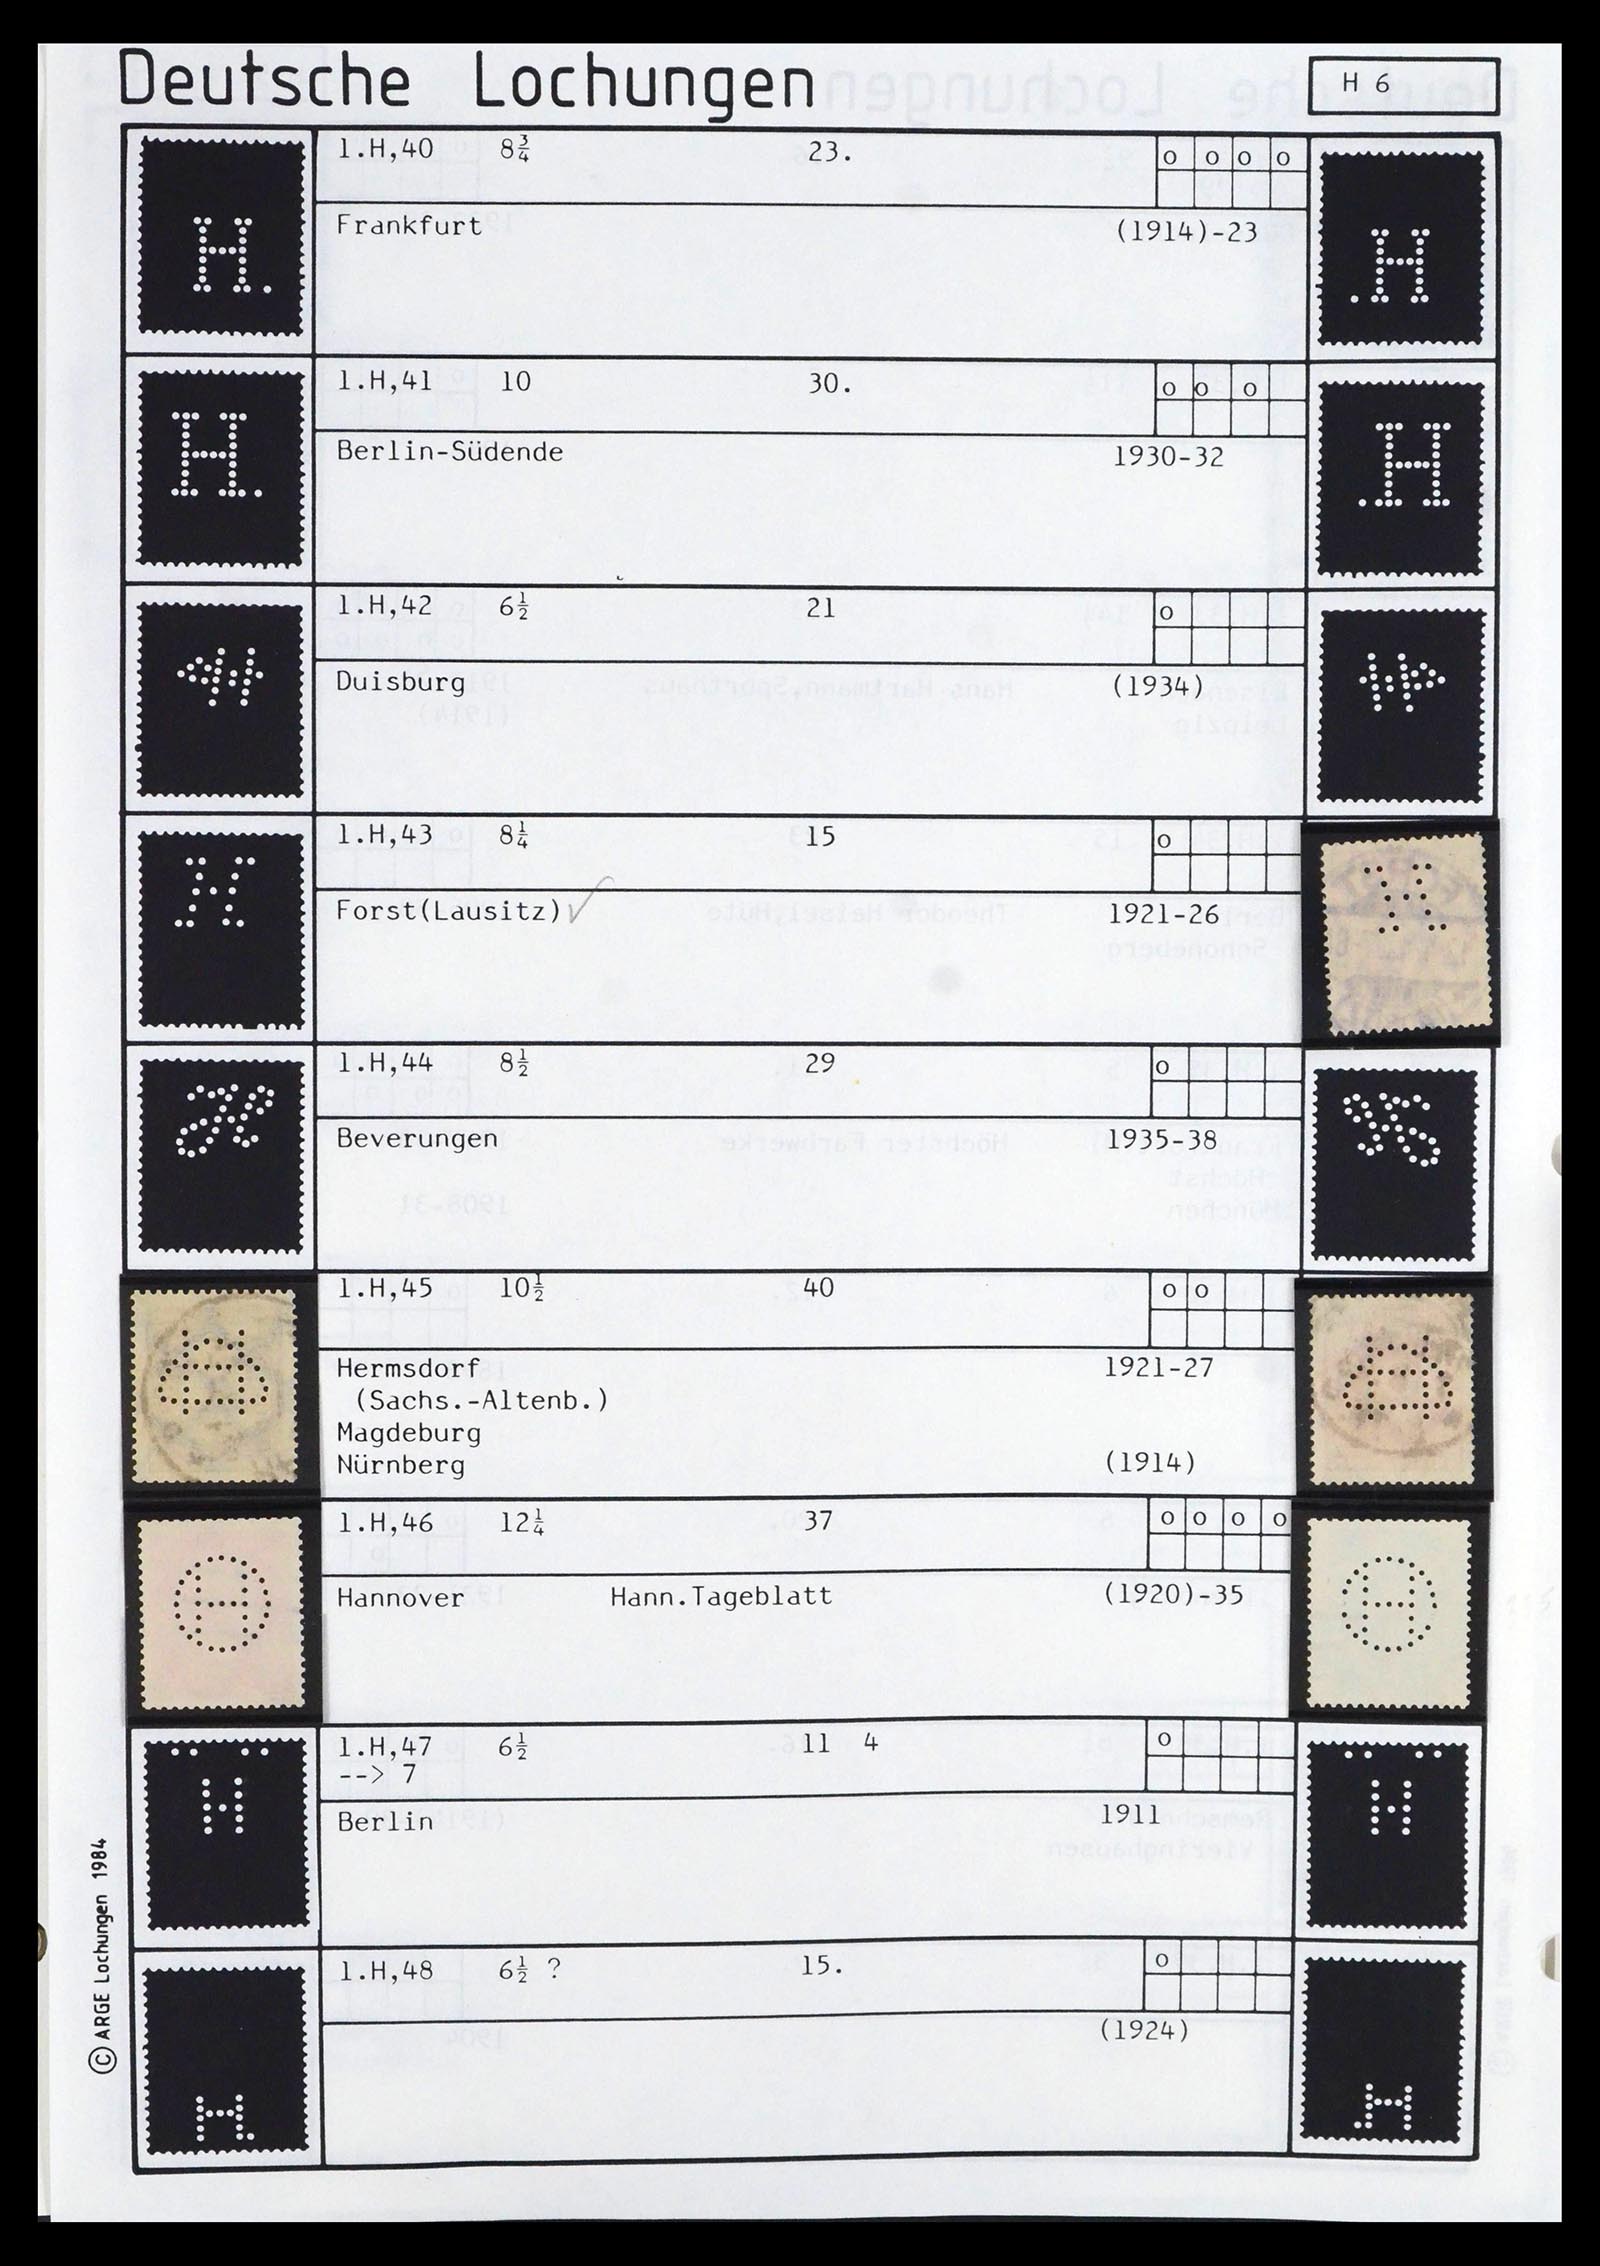 Deutsche Lochungen
H 6
1.H,40 8¾ 23.
o o o o
Frankfurt (1914)-23
H. .H
1.H,41 10 30.
o o o
Berlin-Südende 1930-32
H. .H
1.H,42 6½ 21
o
Duisburg (1934)
1.H,43 8¼ 15
o
Forst(Lausitz) 1921-26
H
1.H,44 8½ 29
o
Beverungen 1935-38
H
1.H,45 10½ 40
o o
Hermsdorf 1921-27
(Sachs.-Altenb.)
Magdeburg
Nürnberg (1914)
1.H,46 12¼ 37
o o o o
Hannover Hann.Tageblatt (1920)-35
H H
1.H,47 6½ 11 4
o
--> 7
Berlin 1911
H H
1.H,48 6½ ? 15.
o
(1924)
H. .H
© ARGE Lochungen 1984